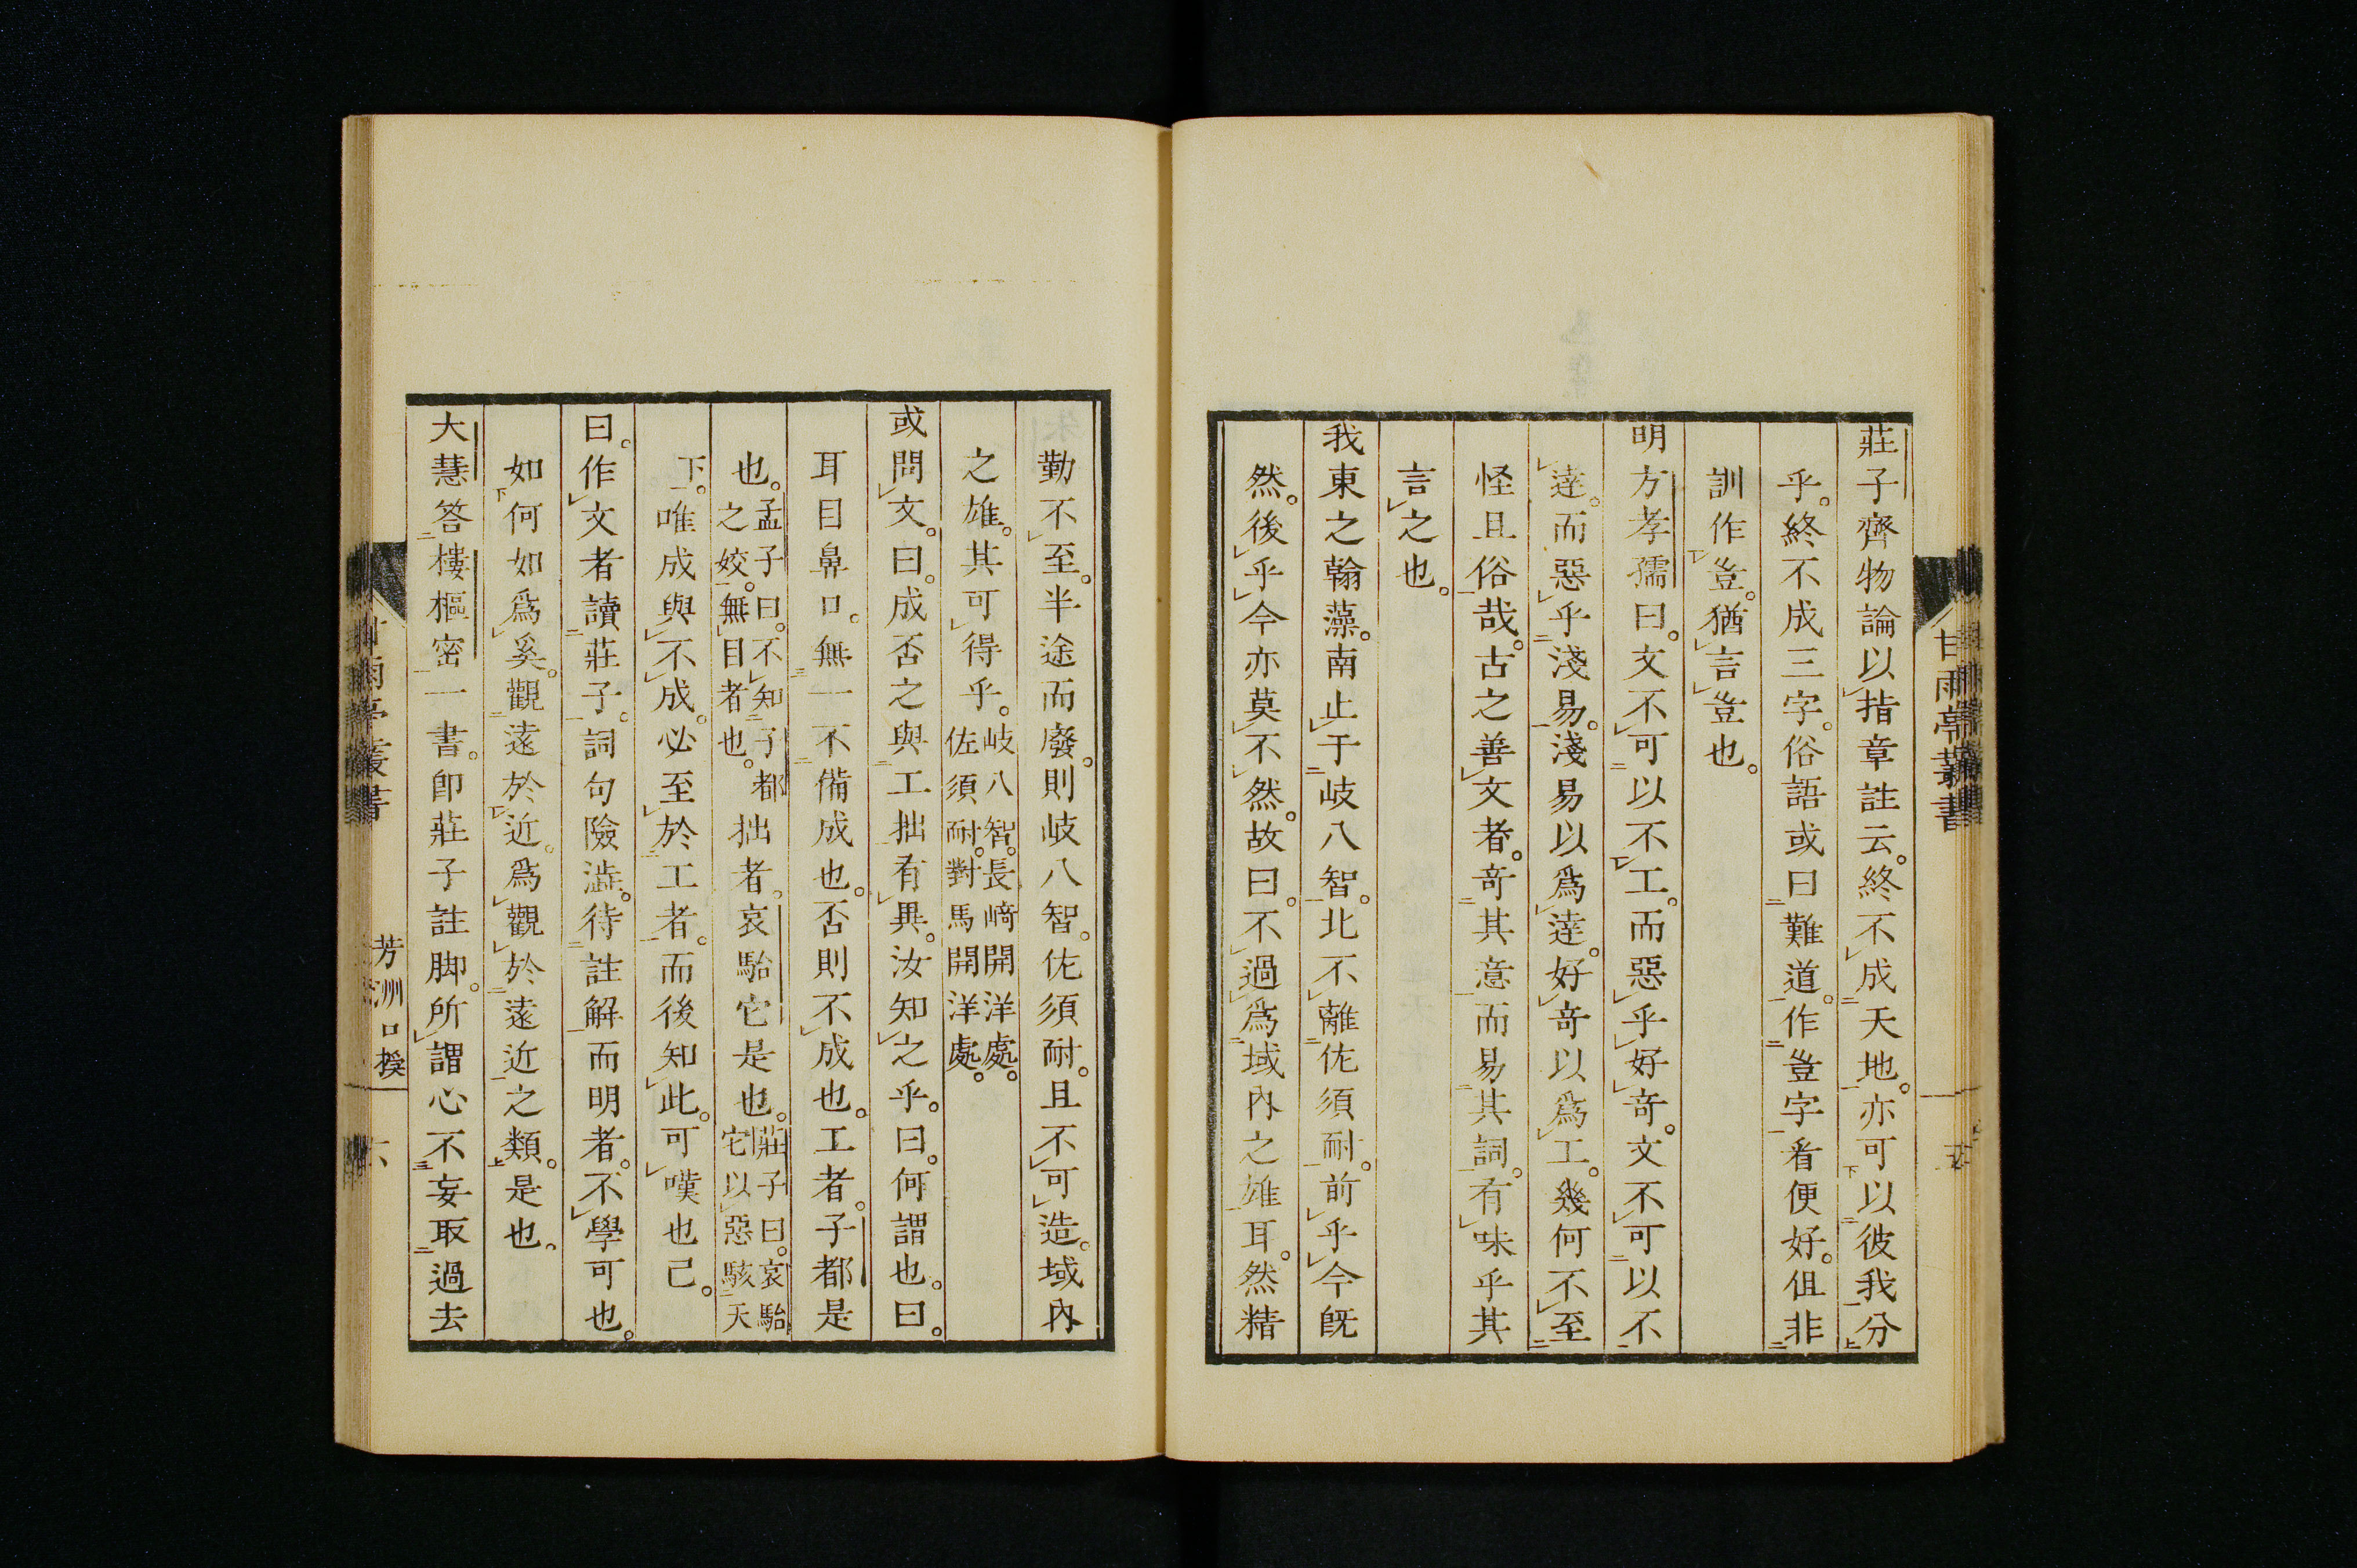 莊子齊物論以指章註云。終不成天地。亦可以彼我分
乎。終不成三字。俗語或曰難道。作豈字看便好。但非
訓作豈。猶言豈也。
明方孝孺曰。文不可以不工。而惡乎好奇。文不可以不
達。而惡乎淺易。淺易以爲達。好奇以爲工。幾何不至
怪且俗哉。古之善文者。奇其意而易其詞。有味乎其
言之也。
我東之翰藻。南止于岐八智。北不離佐須耐。前乎今旣
然。後乎今亦莫不然。故曰。不過爲域內之雄耳。然精
甘雨亭叢書
勤不至。半途而廢。則岐八智。佐須耐。且不可造。域內
之雄。其可得乎。岐八智。長﨑開洋處。佐須耐。對馬開洋處。
或問文。曰。成否之與工拙有異。汝知之乎。曰。何謂也。曰。
耳目鼻口。無一不備成也。否則不成也。工者。子都是
也。孟子曰。不知子都之姣。無目者也。拙者。哀駘它是也。莊子曰。哀駘它以惡駭天
下。唯成與不成。必至於工者。而後知此。可嘆也已。
曰。作文者讀莊子。詞句險澁。待註解而明者。不學可也。
如何如爲奚。觀遠於近。爲觀於遠近之類。是也。
大慧答樓樞密一書。卽莊子註脚。所謂心不妄取過去
甘雨亭叢書
芳洲口授
六